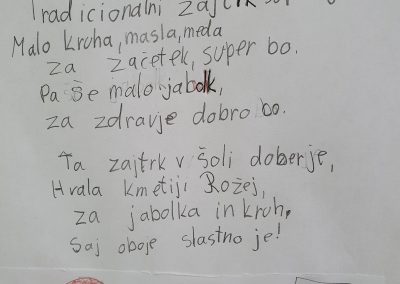 Tradicionalni zajtrk
Malo kruha, masla, meda
za začetek, super bo.
Pa še malo jabolk,
za zdravje dobro bo.
Ta zajtrk v šoli dober je,
Hvala kmetiji Rožej,
za jabolka in kruh,
saj oboje slastno je!